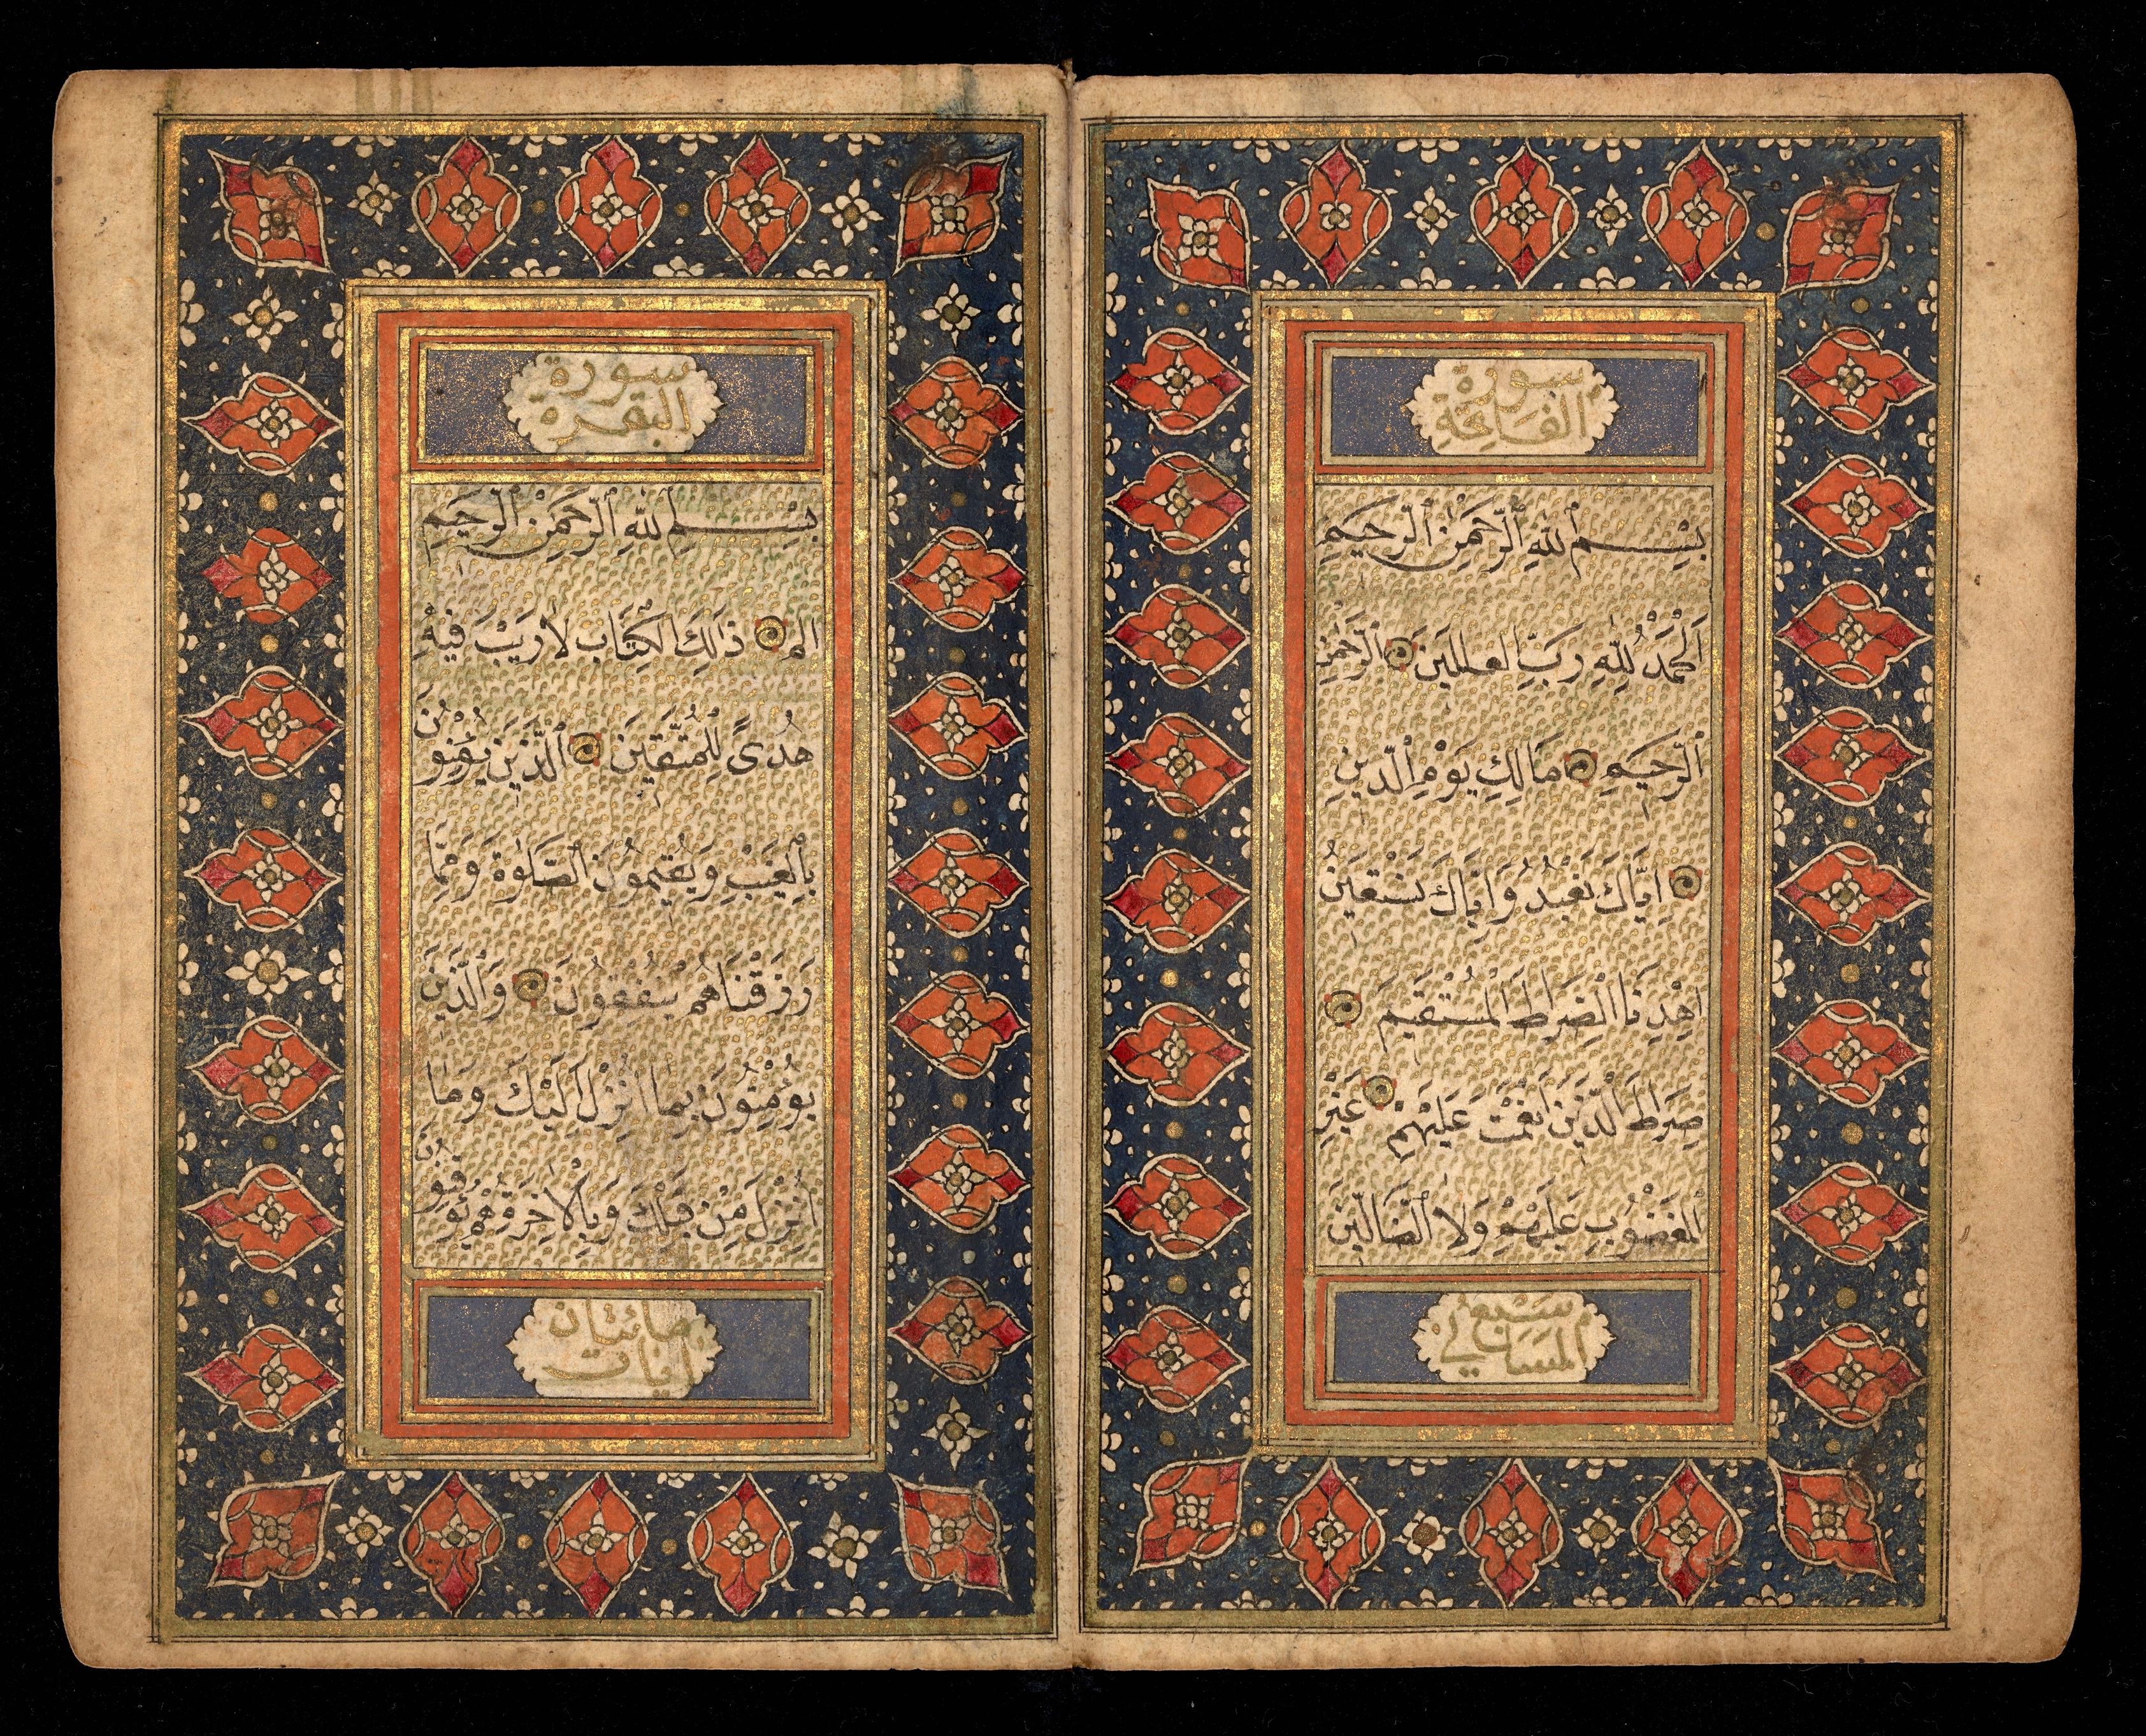 سورة
الفاتحة
بِسْمِ اللّٰهِ الرَّحْمٰنِ الرَّحِيمِ
اَلْحَمْدُ لِلّٰهِ رَبِّ الْعٰلَمِينَ الرَّحْمٰنِ
الرَّحِيمِ مَالِكِ يَوْمِ الدِّينِ
اِيَّاكَ نَعْبُدُ وَاِيَّاكَ نَسْتَعِينُ
اِهْدِنَا الصِّرَاطَ الْمُسْتَقِيمَ
صِرَاطَ الَّذِينَ اَنْعَمْتَ عَلَيْهِمْ غَيْرِ
الْمَغْضُوبِ عَلَيْهِمْ وَلَا الضَّالِّينَ
سبع
المساني
سورة
البقرة
بِسْمِ اللّٰهِ الرَّحْمٰنِ الرَّحِيمِ
الم ذَالِكَ الْكِتَابُ لَا رَيْبَ فِيهِ
هُدًى لِلْمُتَّقِينَ الَّذِينَ يُؤْمِنُونَ
بِالْغَيْبِ وَيُقِيمُونَ الصَّلٰوةَ وَمِمَّا
رَزَقْنَاهُمْ يُنْفِقُونَ وَالَّذِينَ
يُؤْمِنُونَ بِمَا اُنْزِلَ اِلَيْكَ وَمَا
اُنْزِلَ مِنْ قَبْلِكَ وَبِالْاٰخِرَةِ هُمْ يُوقِنُونَ
مائتان
ايات